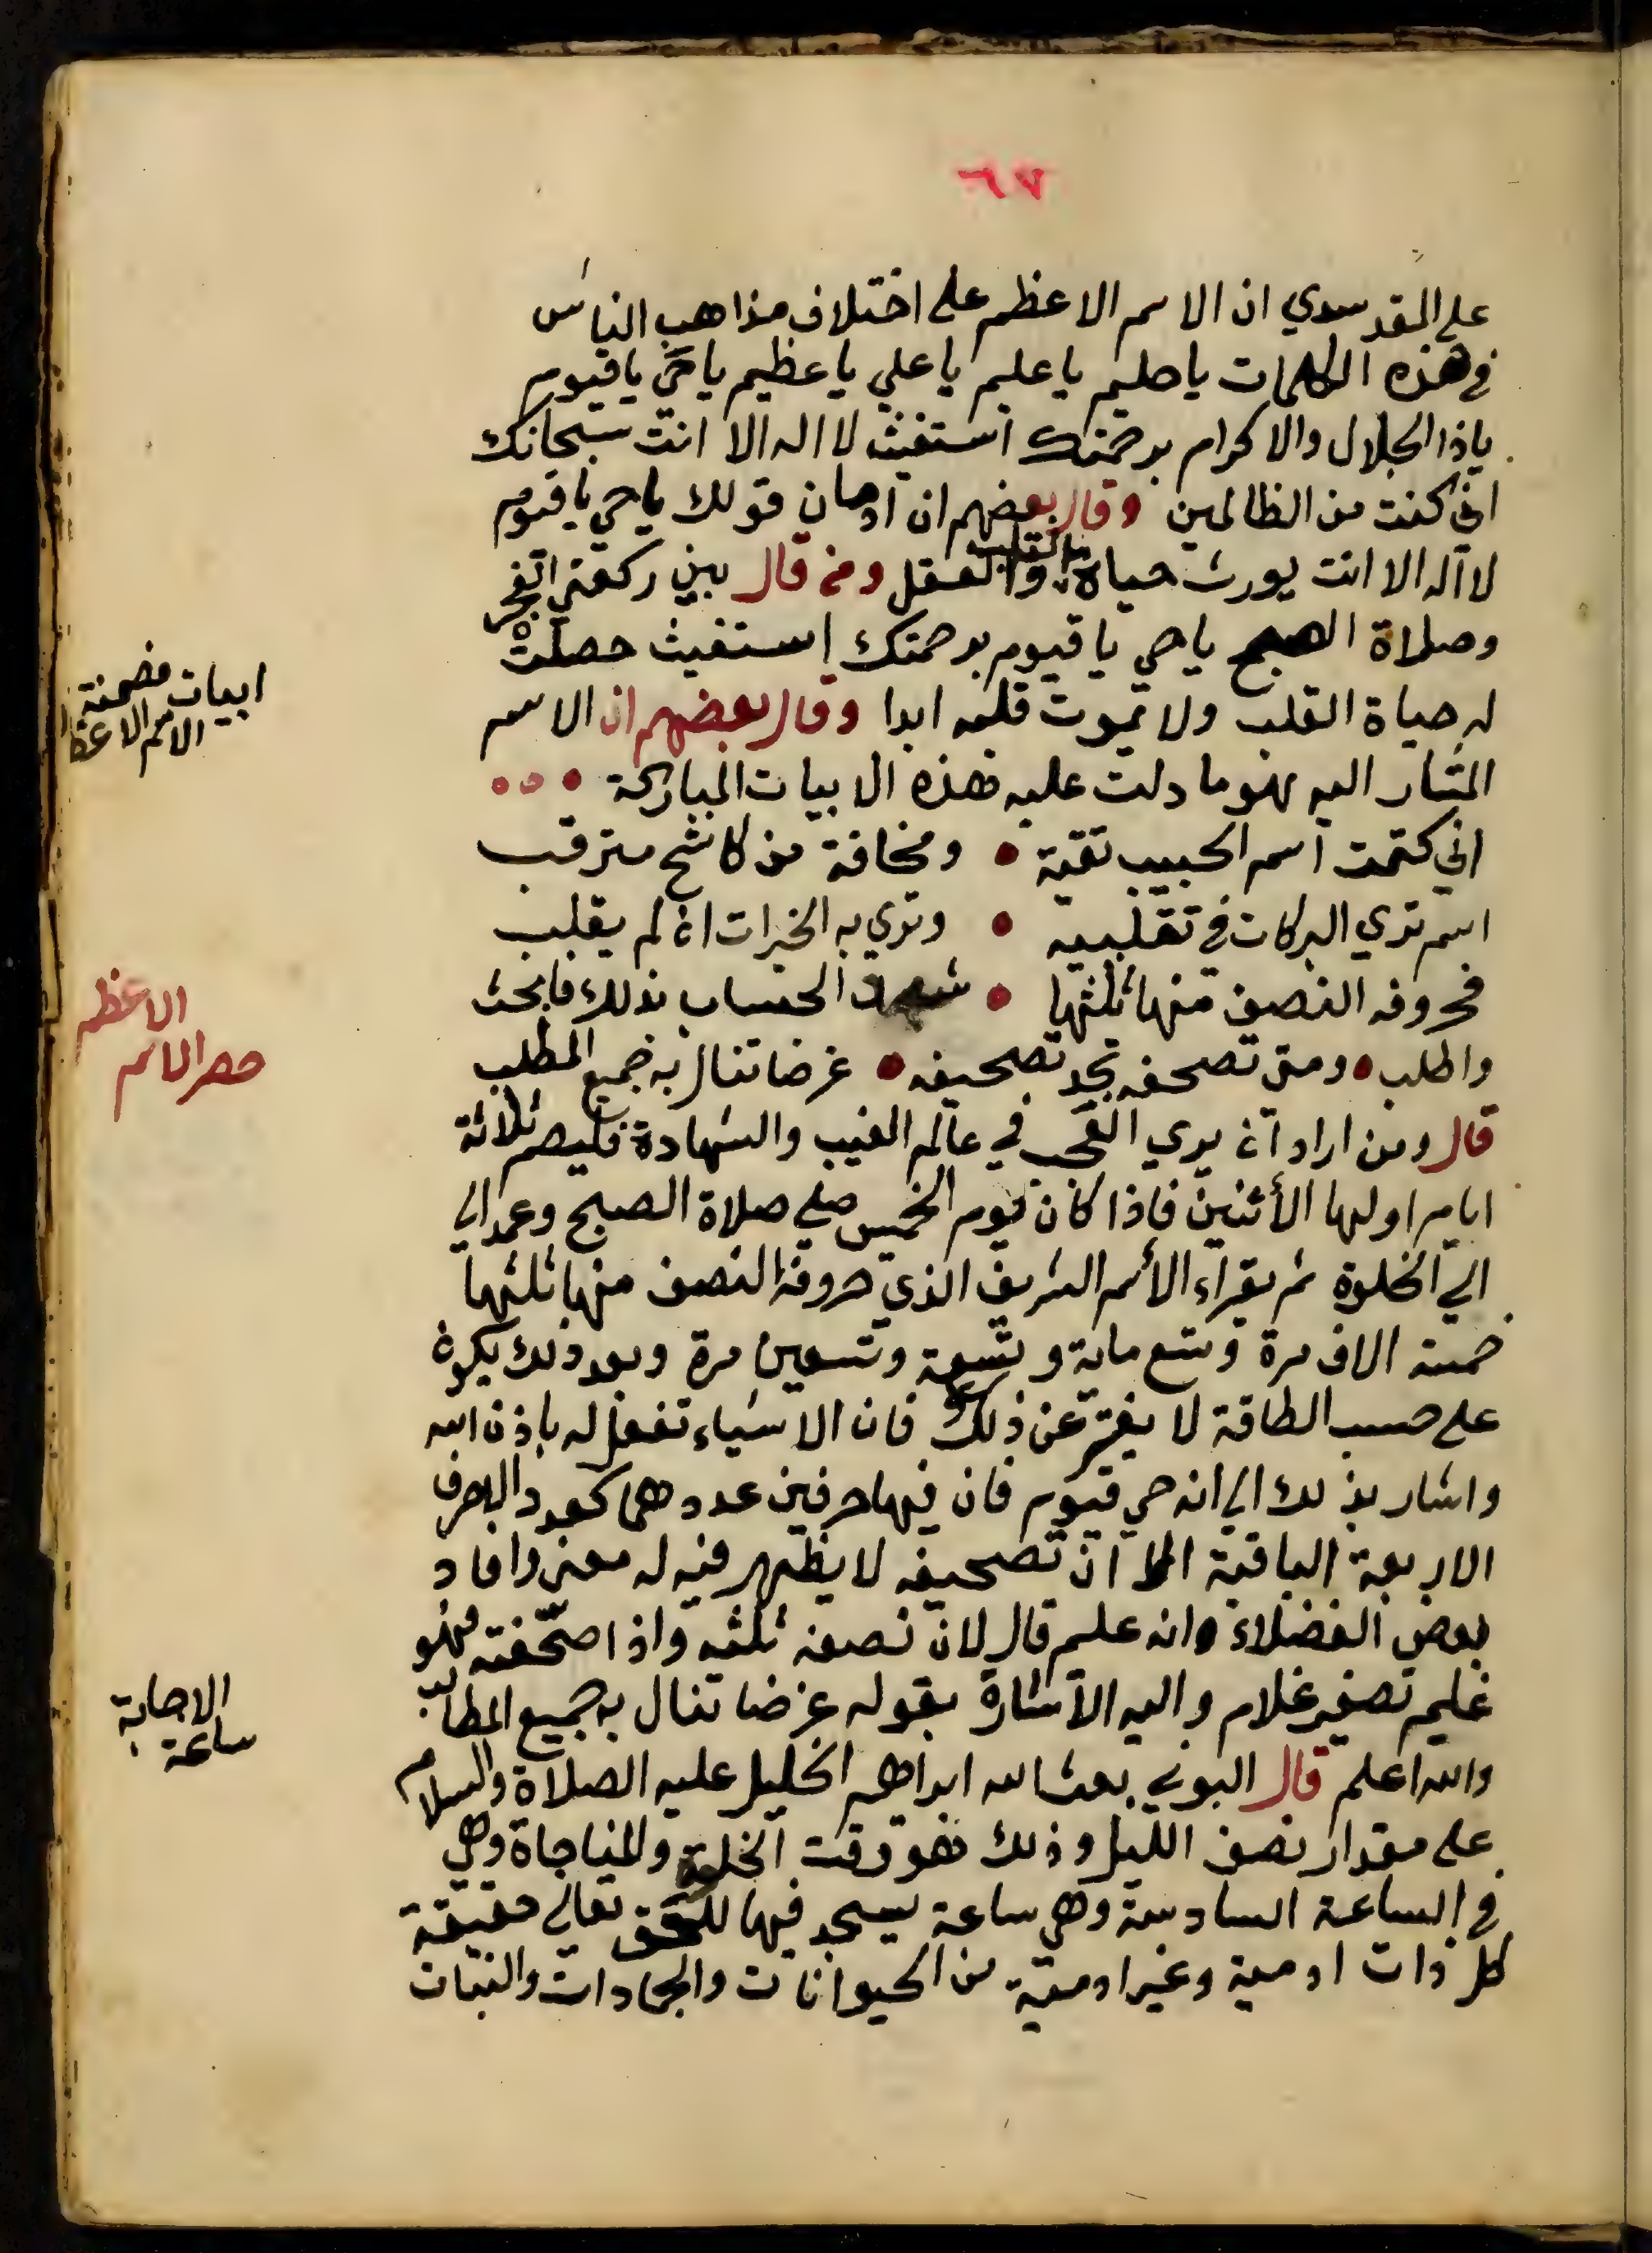 ٦٧
علي المقدسدي ان الاسم الاعظم على اختلاف مذاهب الناس
في هذه الكلمات ياحليم يا عليم يا علي يا عظيم ياحي ياقيوم
ياذا الجلال والاكرام برحمتك استغيث لا اله الا انت سبحانك
اني كنت من الظالمين وقال بعضهم ان ادمان قولك ياحي ياقيوم
لا اله الا انت يورث حياة القلب والعقل ومن قال بين ركعتي الفجر
وصلاة الصبح ياحي ياقيوم برحمتك استغيث حصلت
له حياة القلب ولا يموت قلبه ابدا وقال بعضهم ان الاسم
المشار اليه هو ما دلت عليه هذه الابيات المباركة
اني كتمت اسم الحبيب تقية • ومخافة من كاشح مترقب
اسم تري البركات في تقلبيه • وتري به الخيرات ان لم يقلب
فحروفه النصف منها ثلثها • شهد الحساب بذلك فابحث
واطلب • ومتى تصحفه تجد تصحيفه • غرضا تنال به جميع المطلب
قال ومن اراد ان يري العجب في عالم الغيب والشهادة فليصم ثلاثة
ايام اولها الأثنين فاذا كان يوم الخميس صلي صلاة الصبح وعمد الي
الي الخلوة ثم يقراء الأسم الشريف الذي حروفه النصف منها ثلثها
خمسة الاف مرة وتسع ماية وتسعة وتسعين مرة وبعد ذلك يكون
على حسب الطاقة لا يفتر عن ذلك فان الاشياء تنفعل له باذن الله
واشار بذلك الي انه حي قيوم فان فيها حرفين عددهما كعدد الاحرف
الاربعة الباقية الا ان تصحيفه لا يظهر فيه له معنى وافاد
بعض الفضلاء وانه عليم قال لان نصفه ثلثه واذا صحفته فهو
غليم تصغير غلام واليه الاشارة بقوله غرضا تنال به جميع المطالب
والله اعلم قال البوني بعث الله ابراهيم الخليل عليه الصلاة والسلام
على مقدار نصف الليل وذلك هو وقت الخلوة والمناجاة وهي
في الساعة السادسة وهي ساعة يسجد فيها للحق تعالى حقيقة
كل ذات ادمية وغير ادمية من الحيوانات والجمادات والنبات
ابيات مضمنة
الاسم الاعظ
الاعظم
حصر الاسم
الاجابة
ساعة